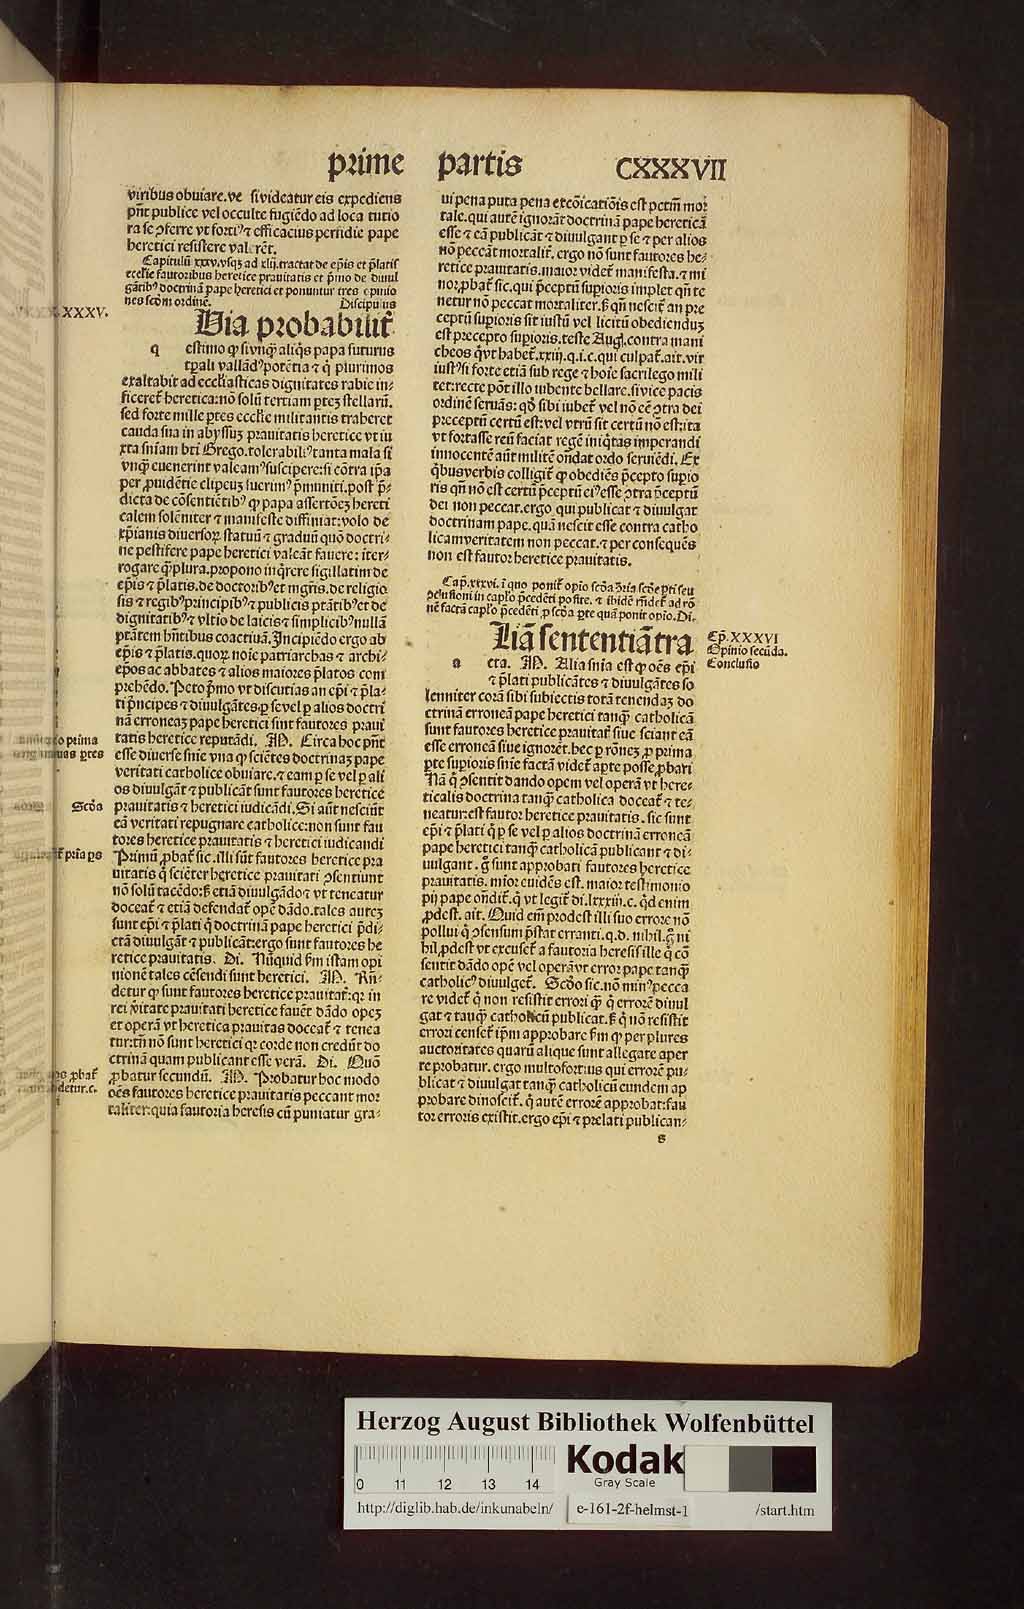 prime partis CXXXVII
viribus obuiare.ve si videatur eis expediens
pñt publice vel occulte fugiẽdo ad loca tutio
ra se ɔferre vt fortiꝰ ⁊ efficacius perfidie pape
heretici resistere valerẽt.
Capitulũ xxxv.vsqꝫ ad xlij.tractat de ep̃is et p̃latis
ecclie fautoribus heretice prauitatis et p̃mo de diuul
gãtibꝰ doctrinã pape heretici et ponuntur tres opinio
nes scd̃m ordinẽ. Discipulus
XXXV.
Uia probabilit̃
q estimo ꝙ si vnqꝫ̃ aliq̃s papa futurus
tꝑali vallãdꝰ potẽtia ⁊ q̃ plurimos
exaltabit ad ecclesiasticas dignitates rabie in⸗
ficeret̃ heretica: nõ solũ tertiam ꝑteꝫ stellarũ.
sed forte mille ꝑtes ecclie militantis traheret
cauda sua in abyssuꝫ prauitatis heretice vt iu
xta sniam bt̃i Grego.tolerabiliꝰ tanta mala si
vnqꝫ̃ euenerint valeamꝰ suscipere: si cõtra ip̃a
per ꝓuidẽtie clipeuꝫ fuerimꝰ p̃muniti.post p̃⸗
dicta de cõsentiẽtibꝰ ꝙ papa assertõeꝫ hereti
calem solẽniter ⁊ manifeste diffiniat: volo de
xp̃ianis diuersoꝝ statuũ ⁊ graduũ quõ doctri⸗
ne pestifere pape heretici valeãt fauere: iter⸗
rogare q̃ꝫ plura.propono inq̃rere sigillatim de
ep̃is ⁊ p̃latis.de doctoribꝰ et mgr̃is.de religio
sis ⁊ regibꝰ principibꝰ ⁊ publicis ptãtibꝰ et de
dignitatibꝰ ⁊ vltio de laicis ⁊ simplicibꝰ nullã
ptãtem hñtibus coactiuã.Incipiẽdo ergo ab
ep̃is ⁊ p̃latis.quoꝝ noĩe patriarchas ⁊ archi⸗
ep̃os ac abbates ⁊ alios maiores p̃latos com
prehẽdo. Peto p̃mo vt discutias an ep̃i ⁊ p̃la⸗
ti p̃ncipes ⁊ diuulgãtes.ꝑ se vel ꝑ alios doctri
nã erroneaꝫ pape heretici sunt fautores praui
tatis heretice reputãdi. M̃. Circa hoc pñt
esse diuerse snie vna ꝙ sciẽtes doctrinaꝫ pape
veritati catholice obuiare.⁊ eam ꝑ se vel ꝑ ali
os diuulgãt ⁊ publicãt sunt fautores heretice
prauitatis ⁊ heretici iudicãdi. Si aũt nesciũt
eã veritati repugnare catholice: non sunt fau
tores heretice prauitatis ⁊ heretici iudicandi
Primũ ꝓbat̃ sic.illi sũt fautores heretice pra
uitatis q̃ sciẽter heretice prauitati ɔsentiunt
nõ solũ tacẽdo: sꝫ etiã diuulgãdo ⁊ vt teneatur
doceat̃ ⁊ etiã defendat̃ opẽ dãdo.tales auteꝫ
sunt ep̃i ⁊ p̃lati q̃ doctrinã pape heretici p̃di⸗
ctã diuulgãt ⁊ publicãt: ergo sunt fautores he
retice prauitatis. Di. Nũquid fm̃ istam opi
nionẽ tales cẽsendi sunt heretici. M̃. Rñ⸗
detur ꝙ sunt fautores heretice prauitat̃: qꝛ in
rei ṽitate prauitati heretice fauẽt dãdo opeꝫ
et operã vt heretica prauitas doceat̃ ⁊ tenea
tur: tñ nõ sunt heretici qꝛ corde non credũt do
ctrinã quam publicant esse verã. Di. Quõ
ꝓbatur secundũ. M̃. Probatur hoc modo
oẽs fautores heretice prauitatis peccant mor
taliter: quia fautoria heresis cũ puniatur gra⸗
prima
ꝑtes
Scd̃a
pr̃ia ps
ꝓbat̃
detur.c.
ui pena puta pena excõicatiõnis est pctm̃ mor
tale.qui autẽ ignorãt doctrinã pape hereticã
esse ⁊ eã publicãt ⁊ diuulgant ꝑ se ⁊ per alios
nõ peccãt mortalit̃. ergo nõ sunt fautores he⸗
retice prauitatis.maior videt̃ manifesta.⁊ mi
nor ꝓbat̃ sic.qui p̃ceptũ suꝑioris implet qñ te
netur nõ peccat mortaliter.sꝫ qñ nescit̃ an pre
ceptũ superioris sit iustũ vel licitũ obedienduꝫ
est precepto suꝑioris.teste Aug.contra mani
cheos q̃vt habet̃.xxiij.q.i.c.qui culpat̃.ait.vir
iustꝰ si forte etiã sub rege ⁊ hoĩe sacrilego mili
tet: recte põt illo iubente bellare.si vice pacis
ordinẽ seruãs: qd̃ sibi iubet̃ vel nõ eẽ ɔtra dei
preceptũ certũ est: vel vtrũ sit certũ nõ est: ita
vt fortasse reũ faciat regẽ iniq̃tas imperandi
innocentẽ aũt militẽ oñdat ordo seruiẽdi. Ex
q̃bus verbis colligit̃ ꝙ obediẽs p̃cepto suꝑio
ris qñ nõ est certũ p̃ceptũ eiꝰ esse ɔtra p̃ceptũ
dei non peccat.ergo qui publicat ⁊ diuulgat
doctrinam pape.quã nescit esse contra catho
licam veritatem non peccat.⁊ per consequẽs
non est fautor heretice prauitatis.
Cap̃.xxxvi.ĩ quo ponit̃ opio scd̃a ɔr̃ia scd̃e pti seu
ɔclusioni in cap̃lo p̃cedẽti posite. ⁊ ibidẽ rñdet̃ ad rõ
nẽ factã cap̃lo p̃cedẽti ꝓ scd̃a ꝑte quã ponit opio. Di.
Liã sententiã tra
a cta. M̃. Alia snia est ꝙ oẽs ep̃i
⁊ p̃lati publicãtes ⁊ diuulgãtes so
lenniter corã sibi subiectis totã tenendaꝫ do
ctrinã erroneã pape heretici tanqꝫ̃ catholicã
sunt fautores heretice prauitat̃ siue sciant eã
esse erroneã siue ignorẽt.hec ꝑ rõneꝫ ꝓ prima
ꝑte suꝑioris snie factã videt̃ aꝑte posse ꝓbari
Nã q̃ ɔsentit dando opem vel operã vt here⸗
ticalis doctrina tanqꝫ̃ catholica doceat̃ ⁊ te⸗
neatur: est fautor heretice prauitatis.sic sunt
ep̃i ⁊ p̃lati q̃ ꝑ se vel ꝑ alios doctrinã erroneã
pape heretici tanqꝫ̃ catholicã publicant ⁊ di⸗
uulgant.g̃ sunt approbati fautores heretice
prauitatis.mior euidẽs est. maior testimonio
pij pape oñdit̃.q̃ vt legit̃ di.lxxxiij.c.qd̃ enim
ꝓdest.ait. Quid em̃ prodest illi suo errore nõ
pollui q̃ ɔsensum p̃stat erranti.q.d.nihil.g̃ ni
hil ꝓdest vt excuset̃ a fautoria heresis ille q̃ cõ
sentit dãdo opẽ vel operã vt error pape tanqꝫ̃
catholicꝰ diuulget̃. Scd̃o sic.nõ minꝰ pecca
re videt̃ q̃ non resistit errori qꝫ̃ q̃ errorẽ diuul
gat ⁊ tanqꝫ̃ catholicũ publicat.sꝫ q̃ nõ resistit
errori censet̃ ip̃m approbare fm̃ ꝙ per plures
auctoritates quarũ alique sunt allegate aper
te probatur.ergo multofortius qui errorẽ pu⸗
blicat ⁊ diuulgat tanqꝫ̃ catholicũ eundem ap
probare dinoscit̃. q̃ autẽ errorẽ approbat: fau
tor erroris existit.ergo ep̃i ⁊ prelati publican⸗
s
Cp̃.XXXVI
Opinio secũda.
Conclusio
Herzog August Bibliothek Wolfenbüttel
0 11 12 13 14
Kodak
Gray Scale
http://diglib.hab.de/inkunabeln/ e-161-2f-helmst-1 /start.htm